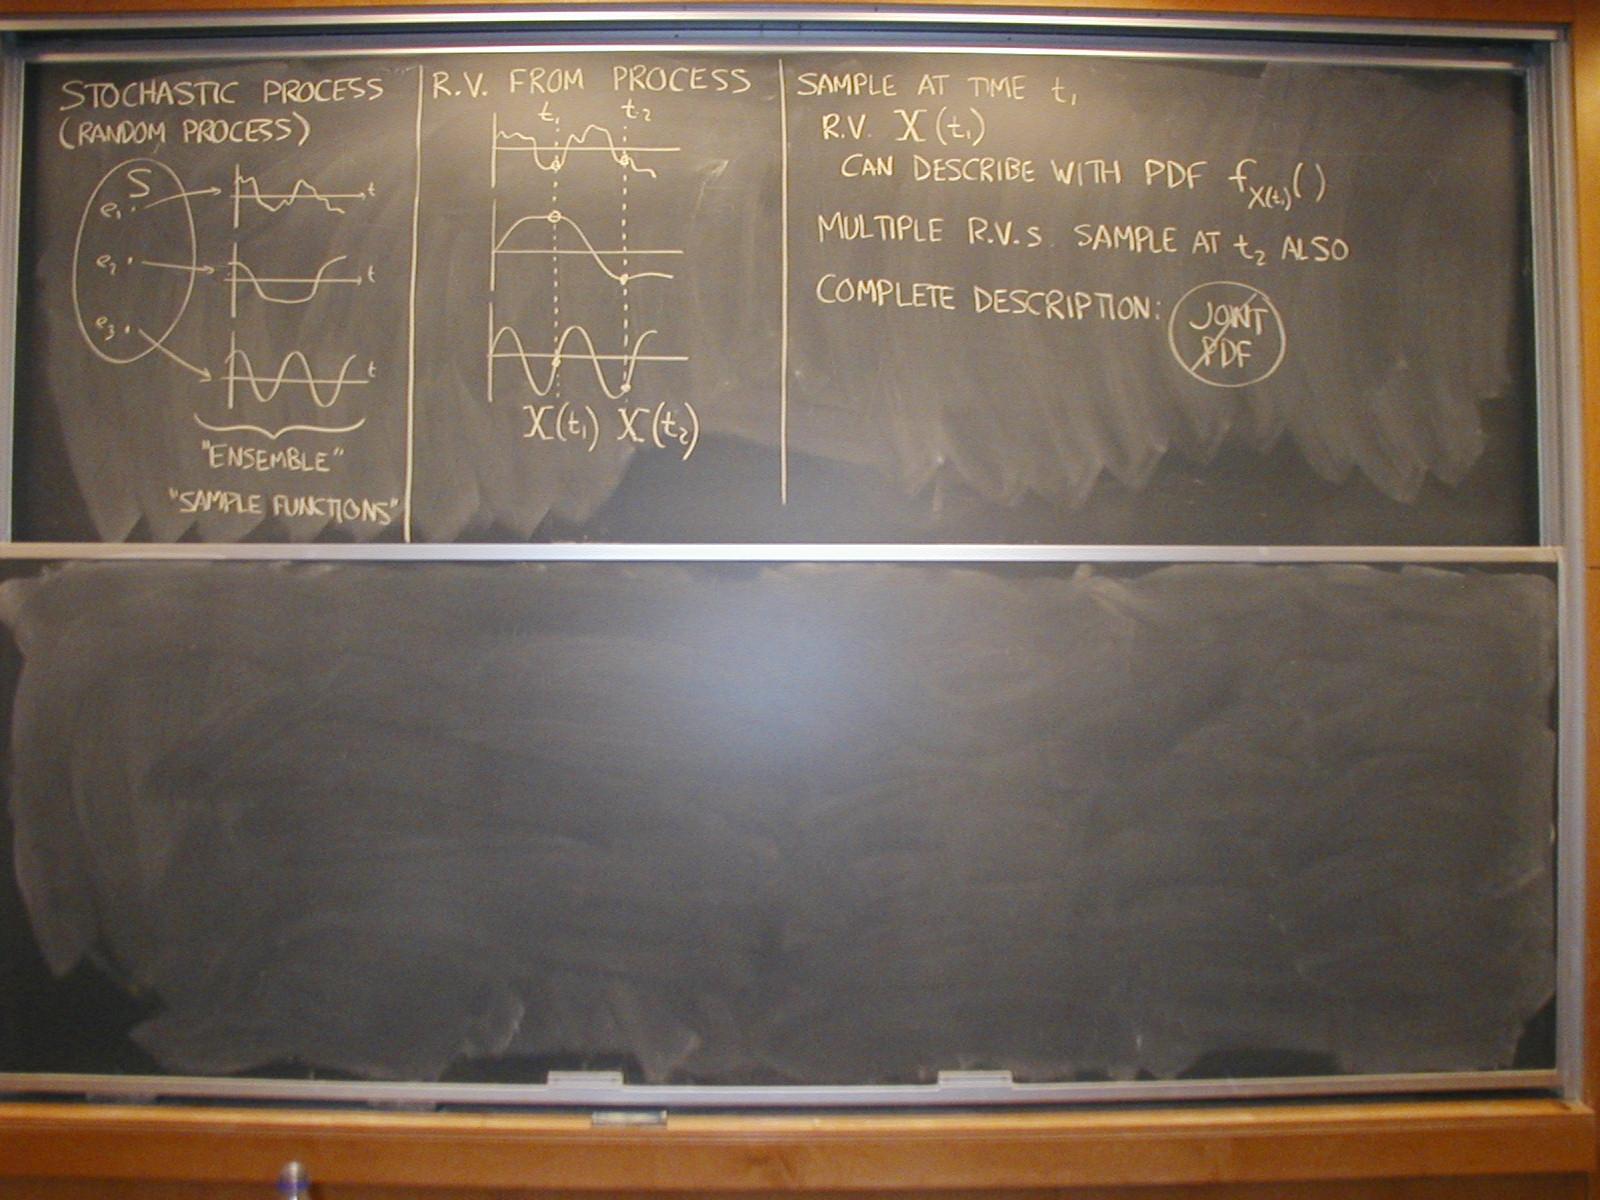 STOCHASTIC PROCESS
(RANDOM PROCESS)
S
e₁
t
e₂
t
e₃
t
"ENSEMBLE"
"SAMPLE FUNCTIONS"
R.V. FROM PROCESS
t₁ t₂
X(t₁) X(t₂)
SAMPLE AT TIME t₁
R.V. X(t₁)
CAN DESCRIBE WITH PDF f_X(t₁)( )
MULTIPLE R.V.s. SAMPLE AT t₂ ALSO
COMPLETE DESCRIPTION: JOINT
PDF